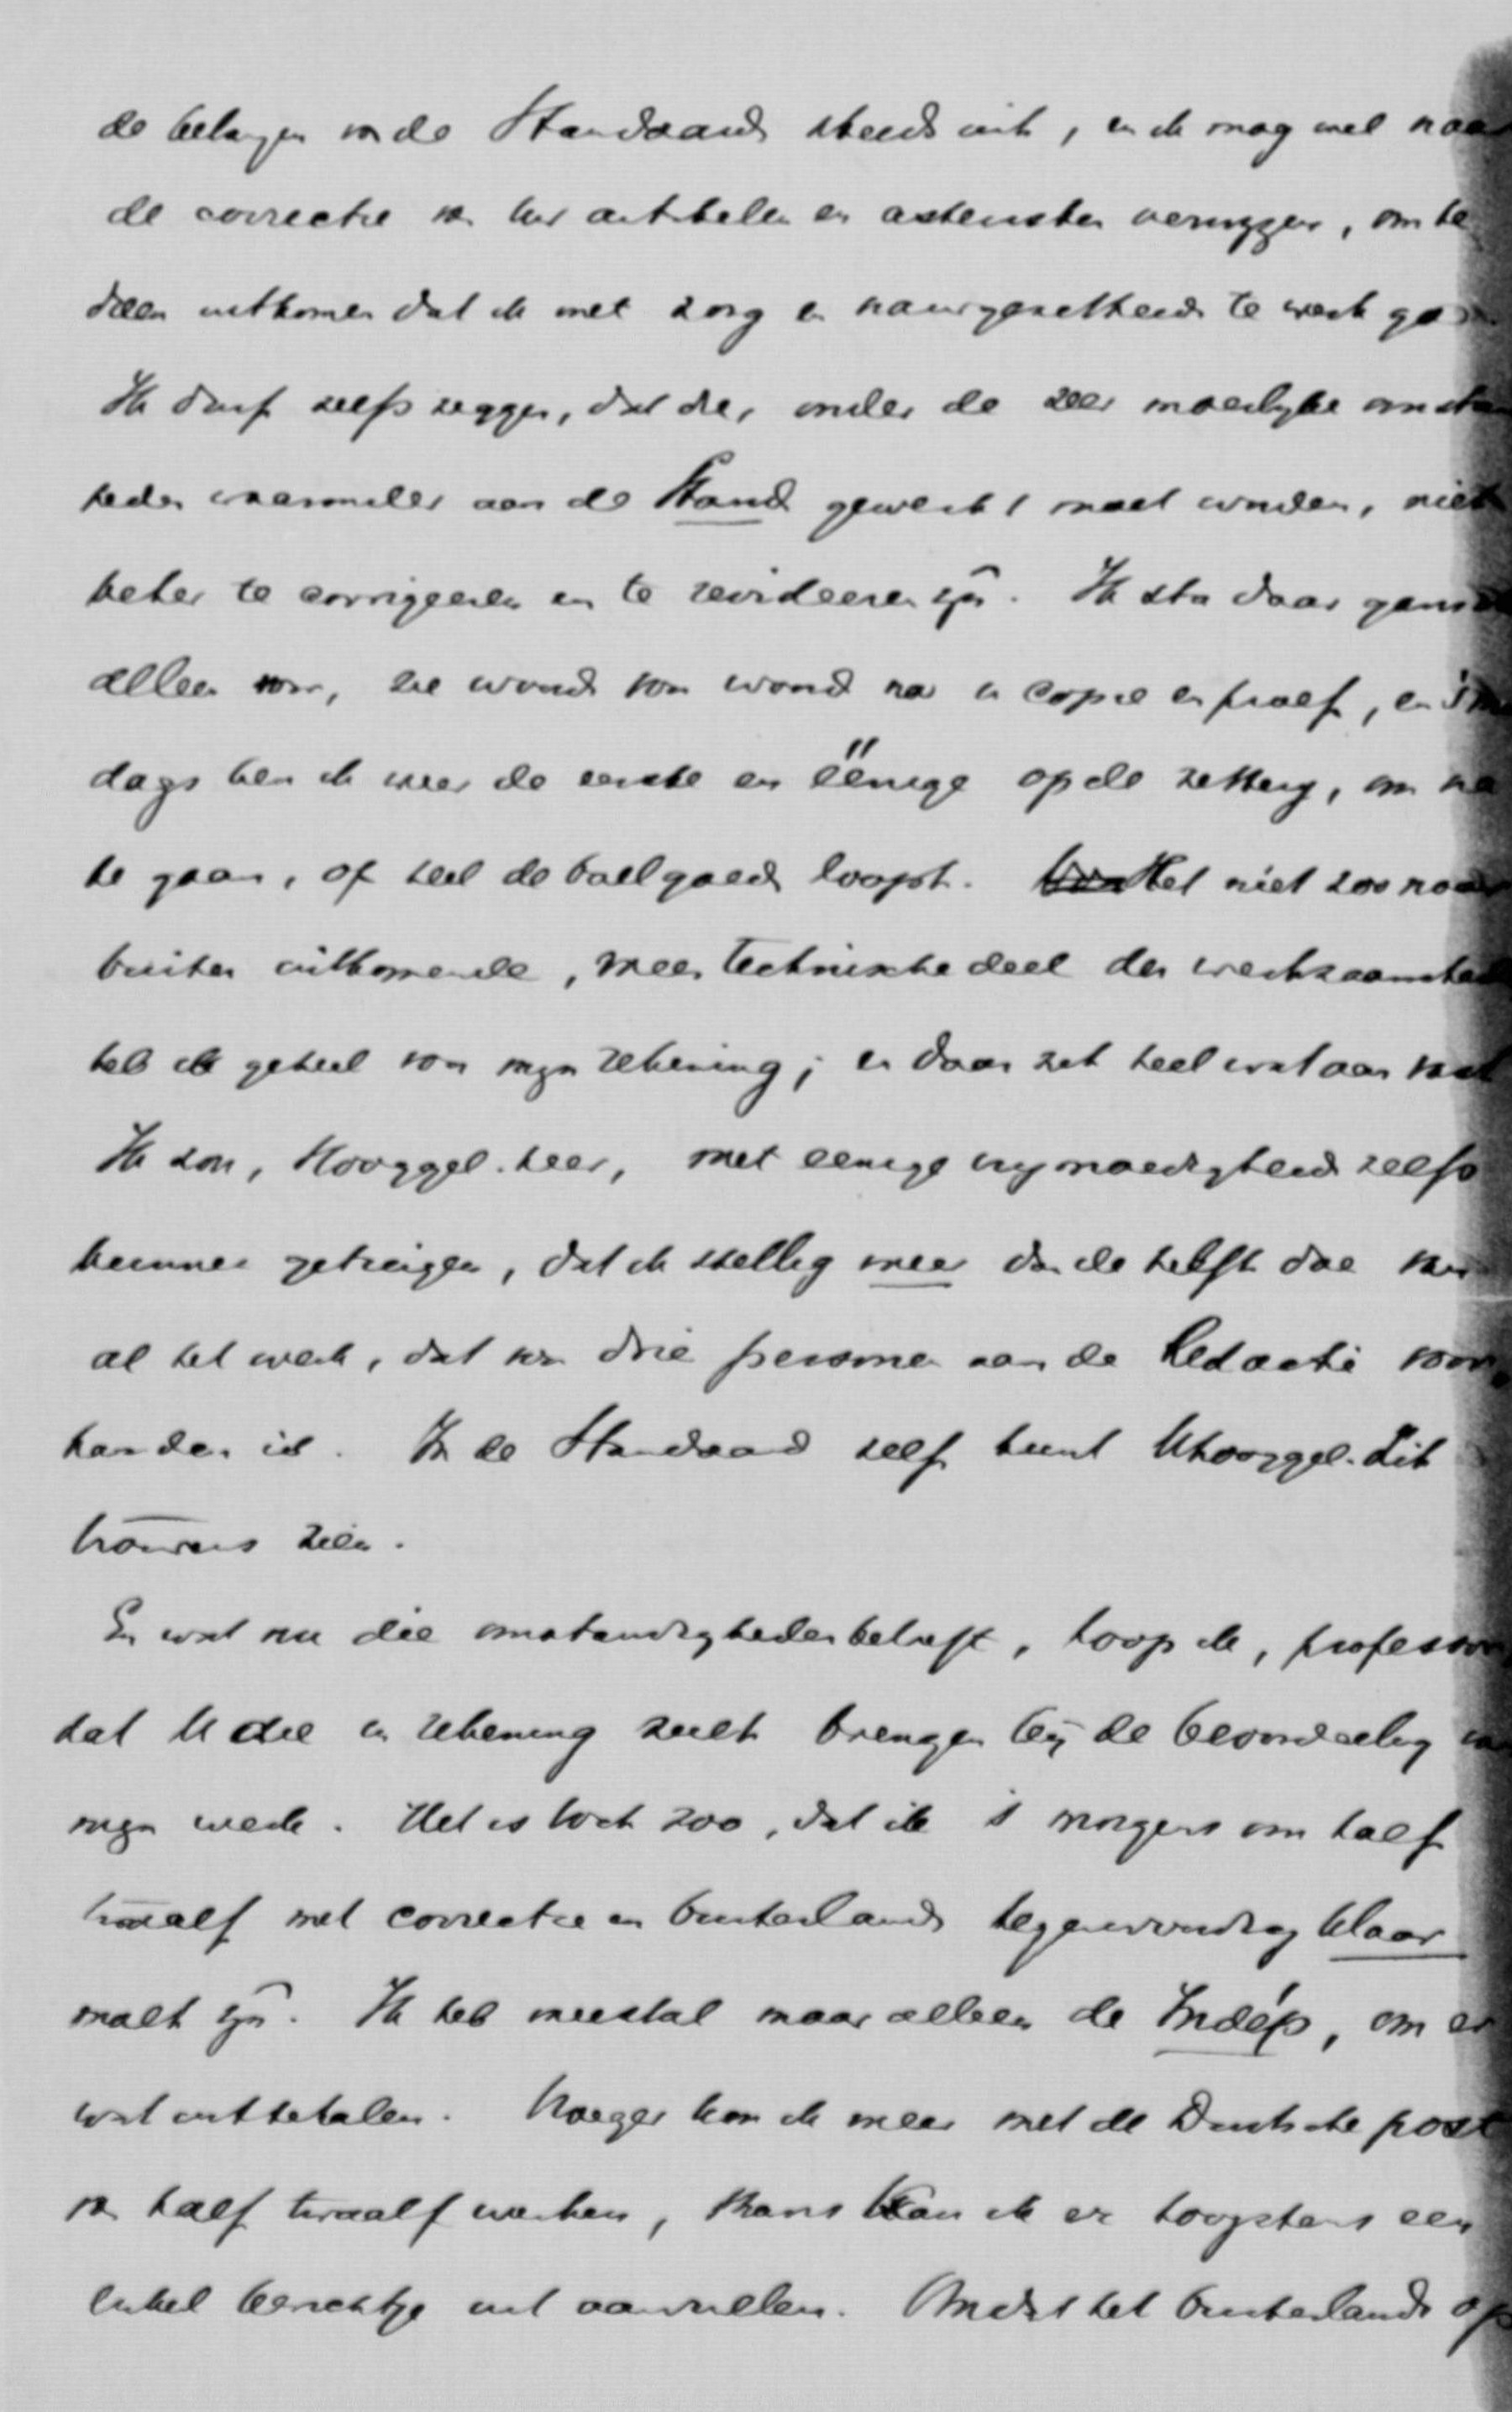 de belangen v. de Standaard steeds uit, en ik mag wel naar
de correctie v. het artikelen en asterisken verwijzen, om te
doen uitkomen dat ik met zorg en nauwgezetheid te werk ga.
Ik durf zelfs zeggen, dat die, onder de zeer moeilijke omstan
heden waaronder aan de Stand gewerkt moet worden, niet
beter te corrigeeren en te revideeren zijn. Ik sta daar gansch
alleen voor, zie woord voor woord na in copie en proef, en 's mid
dags ben ik weer de eerste en éénige op de zetterij, om na
te gaan, of heel de boel goed loopt. Het niet zoo naar
buiten uitkomende, meer technische deel der werkzaamheden
heb ik geheel voor mijn rekening; en daar zit heel wat aan vast
Ik zou, Hooggel. heer, met eenige vrijmoedigheid zelfs
kunnen getuigen, dat ik stellig meer dan de helft doe van
al het werk, dat voor drie personen aan de Redactie voor
handen is. In de Standaard zelf kunt Uhooggel. dit
trouwens zien.
En wat nu die omstandigheden betreft, hoop ik, professor,
dat U die in rekening zult brengen bij de beoordeeling van
mijn werk. Het is toch zoo, dat ik 's morgens om half
twaalf met correctie en buitenland tegenwoordig klaar
moet zijn. Ik heb meestal maar alleen de Indép, om er
wat uit te halen. Vroeger kon ik meer met de Duitsche post
v. half twaalf werken, thans kan ik er hoogstens een
enkel berichtje uit aanvullen. Omdat het buitenland op